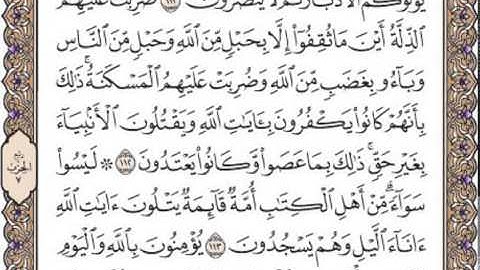 يُوَلُّوكُمُ ٱلۡأَدۡبَارَ ثُمَّ لَا يُنصَرُونَ ١١١ ضُرِبَتۡ عَلَيۡهِمُ
ٱلذِّلَّةُ أَيۡنَ مَا ثُقِفُوٓاْ إِلَّا بِحَبۡلٖ مِّنَ ٱللَّهِ وَحَبۡلٖ مِّنَ ٱلنَّاسِ
وَبَآءُو بِغَضَبٖ مِّنَ ٱللَّهِ وَضُرِبَتۡ عَلَيۡهِمُ ٱلۡمَسۡكَنَةُۚ ذَٰلِكَ
بِأَنَّهُمۡ كَانُواْ يَكۡفُرُونَ بِـَٔايَٰتِ ٱللَّهِ وَيَقۡتُلُونَ ٱلۡأَنۢبِيَآءَ
بِغَيۡرِ حَقّٖۚ ذَٰلِكَ بِمَا عَصَواْ وَّكَانُواْ يَعۡتَدُونَ ١١٢ ۞ لَيۡسُواْ
سَوَآءٗۗ مِّنۡ أَهۡلِ ٱلۡكِتَٰبِ أُمَّةٞ قَآئِمَةٞ يَتۡلُونَ ءَايَٰتِ ٱللَّهِ
ءَانَآءَ ٱلَّيۡلِ وَهُمۡ يَسۡجُدُونَ ١١٣ يُؤۡمِنُونَ بِٱللَّهِ وَٱلۡيَوۡمِ
ربع
الحزب
٧